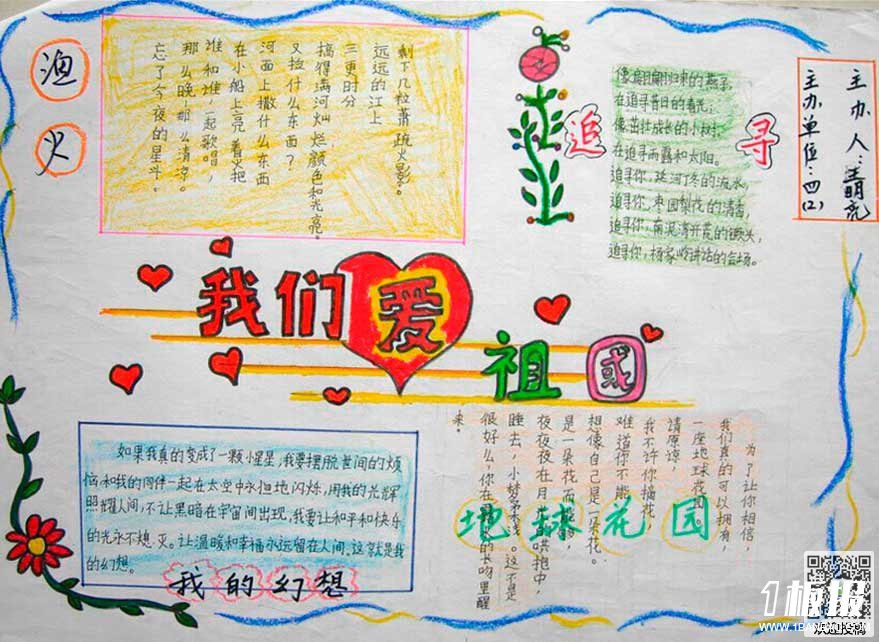 渔
火
剩下几粒萧疏火影。
远远的江上
三更时分
搞得满河灿烂颜色和光亮。
又捡什么东面?
河面上撒什么东西
在小船上亮着火把
谁和谁一起歌唱,
那么晚,那么清凉。
忘了今夜的星斗。
追 寻
像翩翩归来的燕子,
在追寻昔日的春光;
像茁壮成长的小树,
在追寻雨露和太阳。
追寻你,延河叮冬的流水,
追寻你,枣园梨花的清香,
追寻你,南泥湾开荒的锄头,
追寻你,杨家岭讲话的会场。
主办人:王明亮
主办单位:四(2)
我们爱祖国
如果我真的变成了一颗小星星,我要摆脱世间的烦
恼,和我的同伴一起在太空中永恒地闪烁,用我的光辉
照耀人间,不让黑暗在宇宙间出现,我要让和平和快乐
的光永不熄灭。让温暖和幸福永远留在人间。这就是我
的幻想。
我的幻想
地球花园
为了让你相信,
我们真的可以拥有,
一座地球花
请原谅,
我不许你摘花,
难道你不能
想像自己是一朵花。
是一朵花而
夜夜夜在月光的哄抱中,
睡去,小 。这不是
很好么,你在 的长吻里醒
来。
1板报
WWW.1BANBAO.COM
欢迎投稿